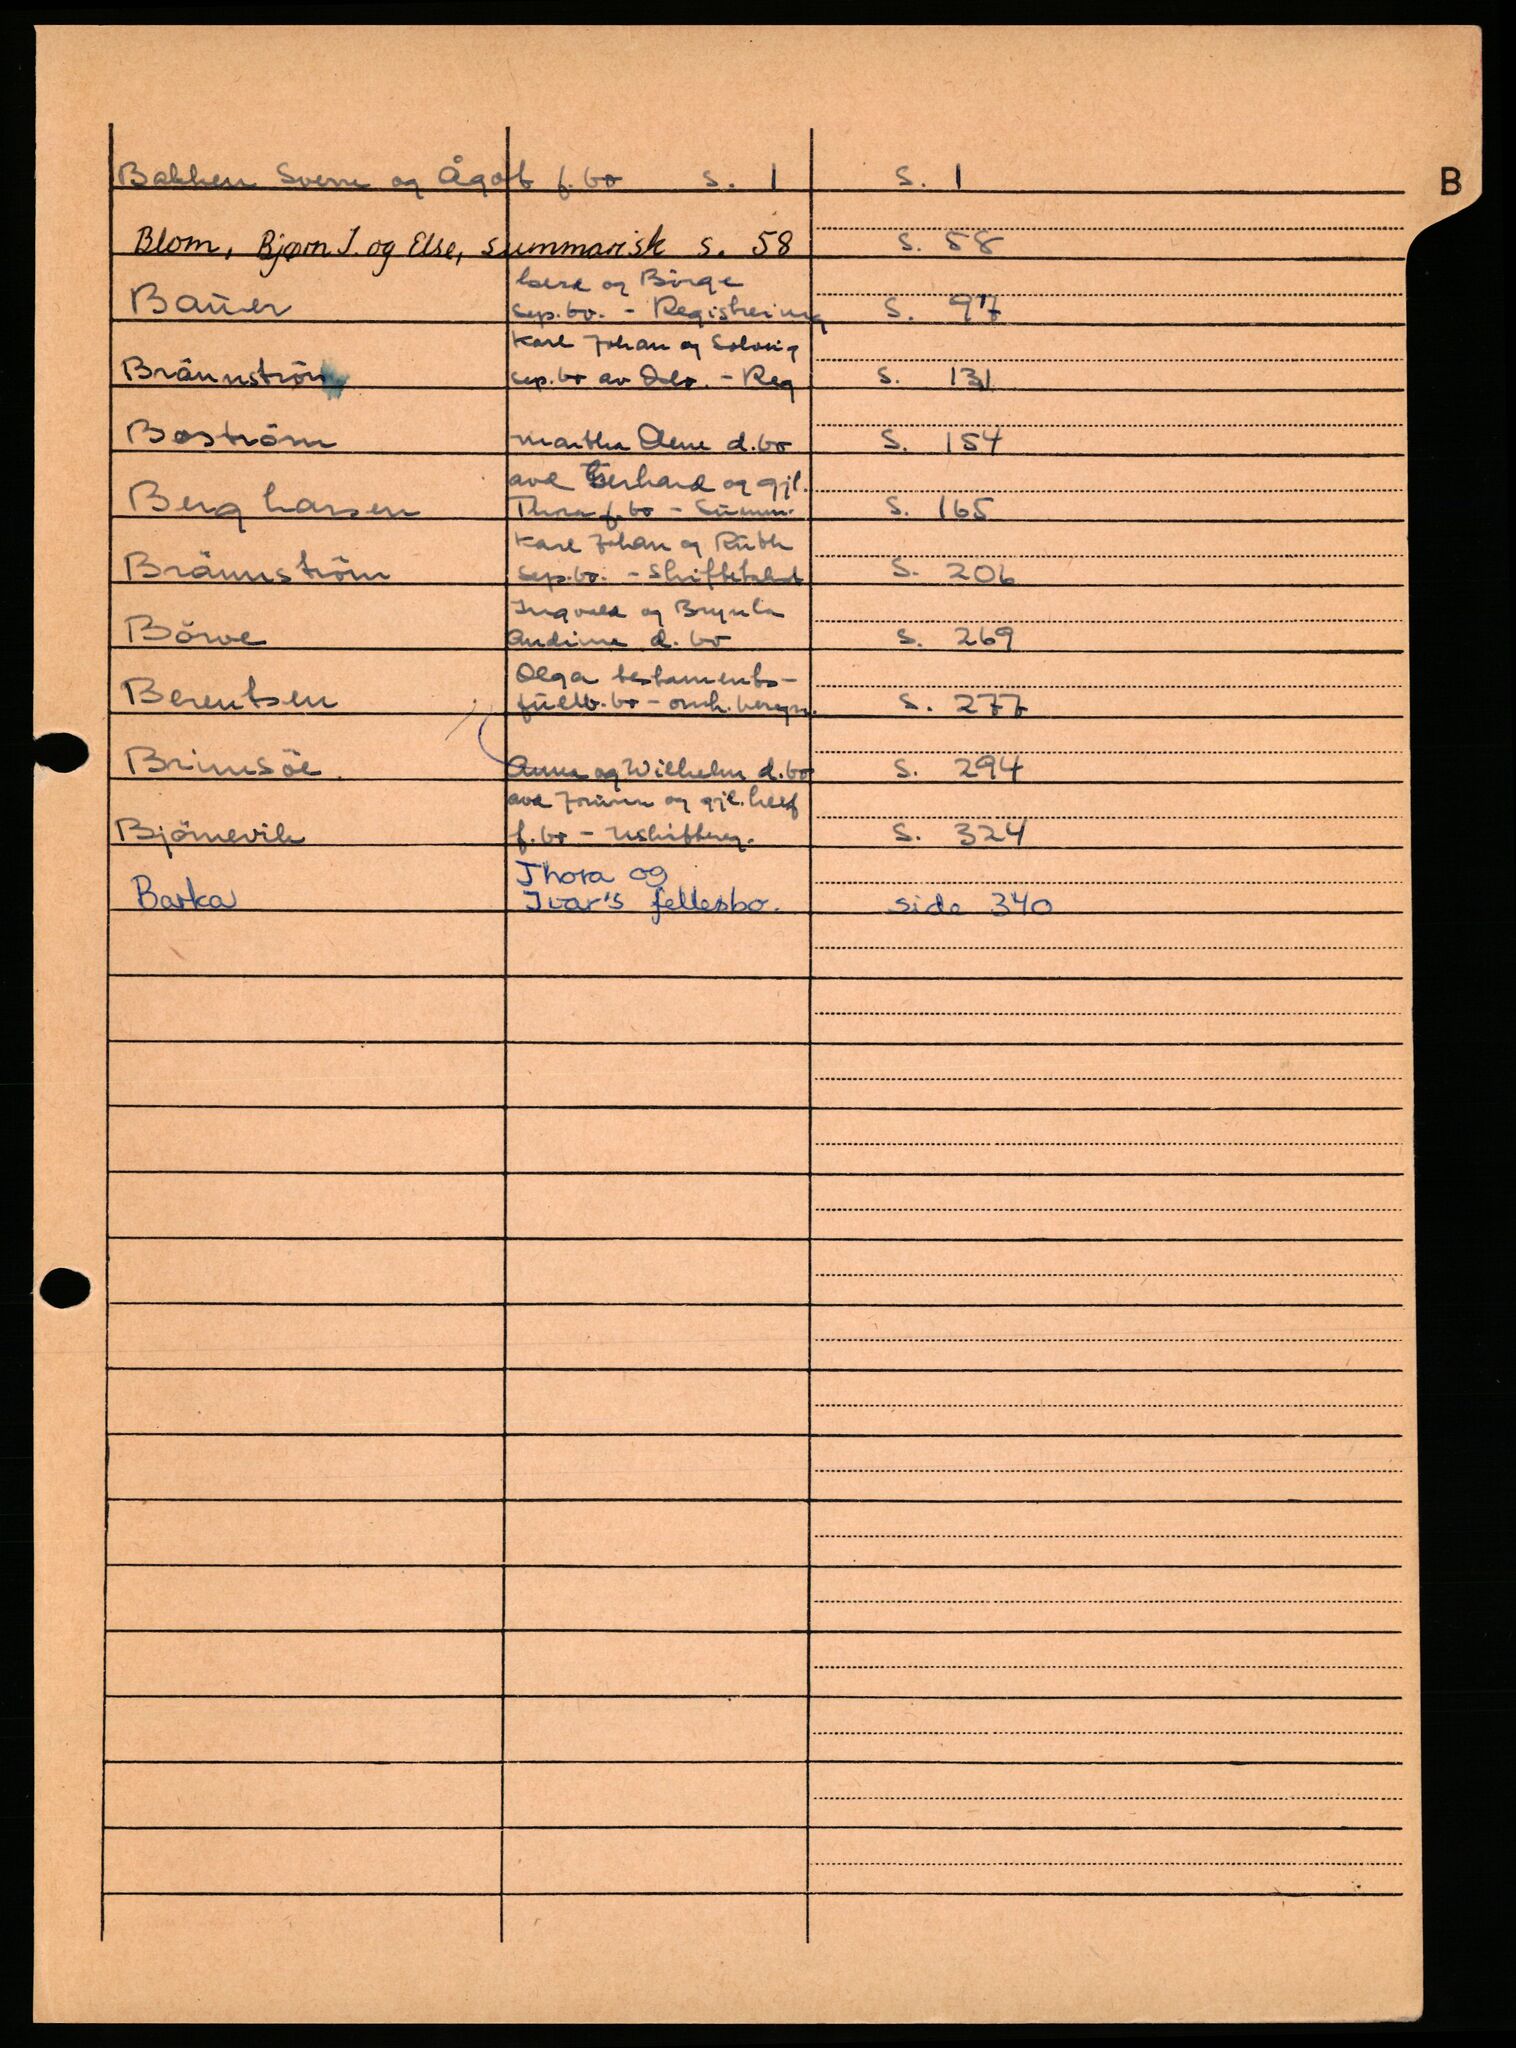 B
Bakken Sverre og Ågot f. bo s. 1 s. 1
Blom, Bjørn J. og Else, summarisk s. 58 s. 58
Gerd og Börge
Bauer sep.bo. - Registrering s. 97
Karl Johan og Solveig
Brännström sep.bo av Oslo. - Reg s. 131
Boström Martha Elene d.bo s. 154
avd Gerhard og gjl.
Berg Larsen Thora f. bo - Summ. s. 165
Karl Johan og Ruth
Brännström sep.bo. - Skifteslutt s. 206
Ingvald og Brynla
Börve Andine d. bo s. 269
Olga testaments-
Berentsen fullb. bo - omk.beregn. s. 277
Brimsöe Anna og Wilhelm d.bo s. 294
avd Jorunn og gjl. Leif
Björnevik f. bo - Uskiftereg. s. 324
Thora og
Barka Ivar's fellesbo. side 340